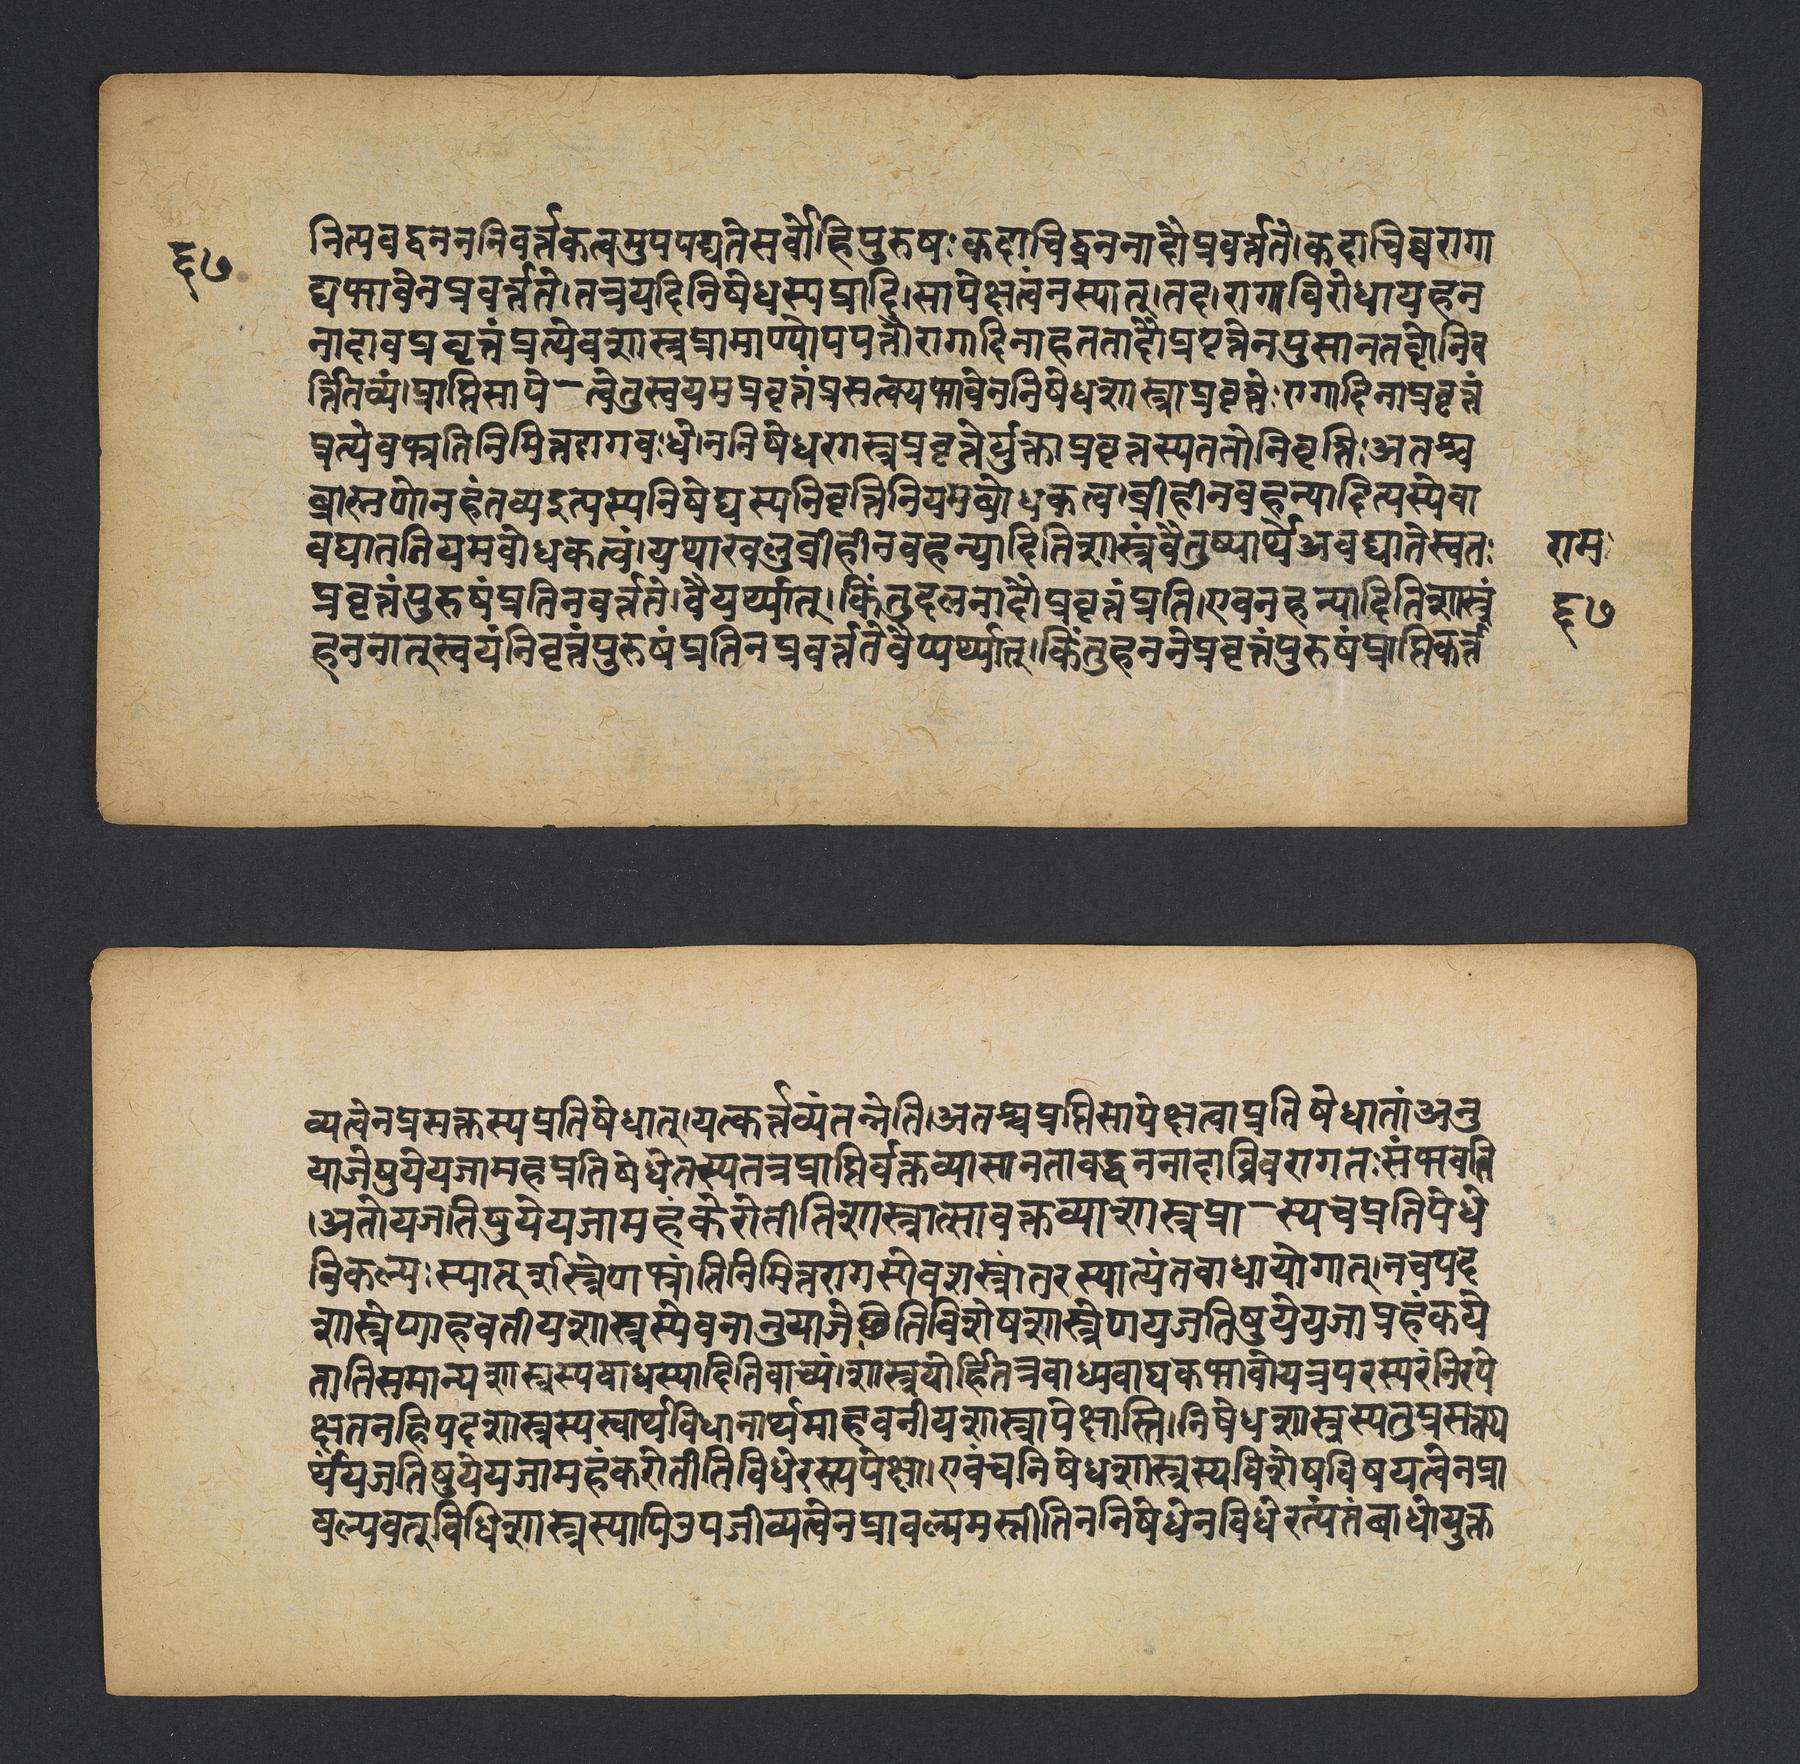 नित्यवद्धननिवर्त्तकत्वमुपपद्यतेसर्वोहिपुरुषःकदाचिद्धननादौप्रवर्त्तते।कदाचिच्चरागा
६७
द्यभावेनप्रवर्त्तते।तत्रयदिनिषेधस्यप्राप्ति।सापेक्षत्वंनस्यात्।तदा।रागाविरोधायहन
नादावप्रवृत्तंप्रत्येवशास्त्रप्रामाण्योपपत्तौ।रागादिनाहतताद्दौप्रवृत्तेनपुसानततो।निव
र्त्तितव्यं।प्राप्तिसापे-त्वेतुस्वयमप्रवृत्तंप्रसत्क्यभावेननिषेधशास्त्राप्रवृत्तेःरागादिनाप्रवृत्तं
प्रत्येवभ्रातिनिमित्तरागबःधेननिषेधशास्त्रप्रवृत्तेर्युक्ताप्रवृत्तस्यततोनिवृत्तिःअतश्च
ब्राह्मणोनहंतव्यइत्यस्यनिषेद्यस्यनिवृत्तिनियमबोधकत्व।व्रीहीनवहन्यादित्यस्येवा
वघाततियमबोधकत्वं।यथाखलुव्रीहीनवहन्यादितिशास्त्रंवैतुष्यार्थेअवद्यातेस्वतः
रामः
प्रवृत्तंपुरुषंप्रतिनवर्त्तते।वैयर्थ्यात्।किंतुदलनादौप्रवृत्तंप्रति।एवनहन्यादितिशास्त्रं
६७
हननात्स्वयंनिवृत्तंपुरुषंप्रतिनप्रवर्त्ततेवैय्यर्थ्यात्।किंतुहननेप्रवृत्तंपुरुषंप्राप्तिकर्त्त
व्यत्वेनप्रसक्तस्यप्रतिषेधात्।यत्कर्त्तव्यंतन्नेति।अतश्चप्रप्तिसापेक्षत्वाप्रतिषेधातांअनु
याजेषुयेयजामहप्रतिषेधेतस्यतत्रप्राप्तिर्वक्तव्यासानतावद्धननादाविवरागतःसंभवति
।अतोयजतिषुयेयजामहंकेरोतीतिशास्त्रात्सावक्तव्याशास्त्रप्रा-स्यचप्रतिषेधे
विकल्पःस्यात्शस्त्रेणभ्रांतिनिमित्तरागस्येवशास्त्रांतरस्यात्यंतवाधायोगात्।नचपद
शास्त्रेणाहवतीयशास्त्रस्येवनानुयाजेष्वितिविशेषशास्त्रेणयजतिषुयेयजाप्रहंकये
तातिसमान्यशास्त्रस्यबाधस्यादितिवाच्यं।शास्त्रयोर्हितत्रवाध्यवाघकभावोयत्रपरस्परंनिरपे
क्षतनहिपदशास्त्रस्यस्वार्थविधानार्थमाहवनीयशास्त्रापेक्षास्ति।निषेधशास्त्रस्यतुप्रसत्क्य
र्थंयजतिषुयेयजामहंकरोतीतिविधेरस्त्यपेक्षा।एवंचनिषेधशास्त्रस्यविशेषविषयत्वेनप्रा
बल्यवत्विधिशास्त्रस्यापिउपजीव्यत्वेनप्रावल्यमस्तीतिननिषेधेनविधेरत्यंतंबाधोयुक्त